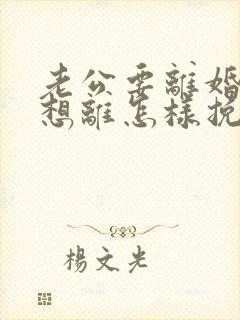 老公要離婚
想離怎樣挽
楊文光